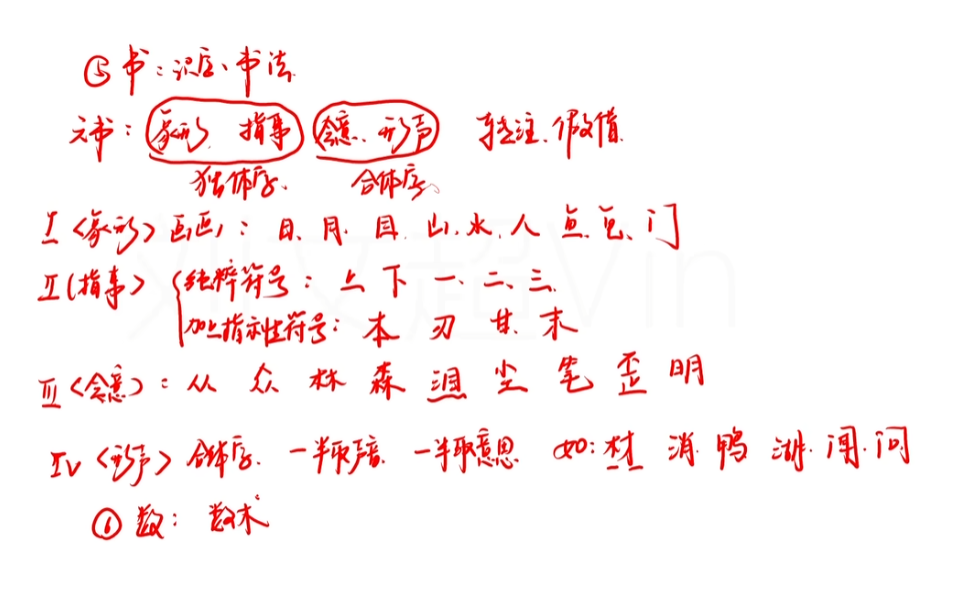 ⑤书：识字、书法
六书：象形、指事 会意、形声 转注、假借
独体字. 合体字、
Ⅰ<象形> 画画：日、月、目、山、水、人 鱼、龟、门
Ⅱ(指事> 纯粹符号：上 下 一、二、三
加上指示性符号：本 刃 甘、末
Ⅲ<会意>：从 众 林 森 泪 尘 笔 歪 明
Ⅳ<形声> 合体字、一半取声音、一半取意思 如：材 消 鸭 湖、闻、问
⑥数：数术